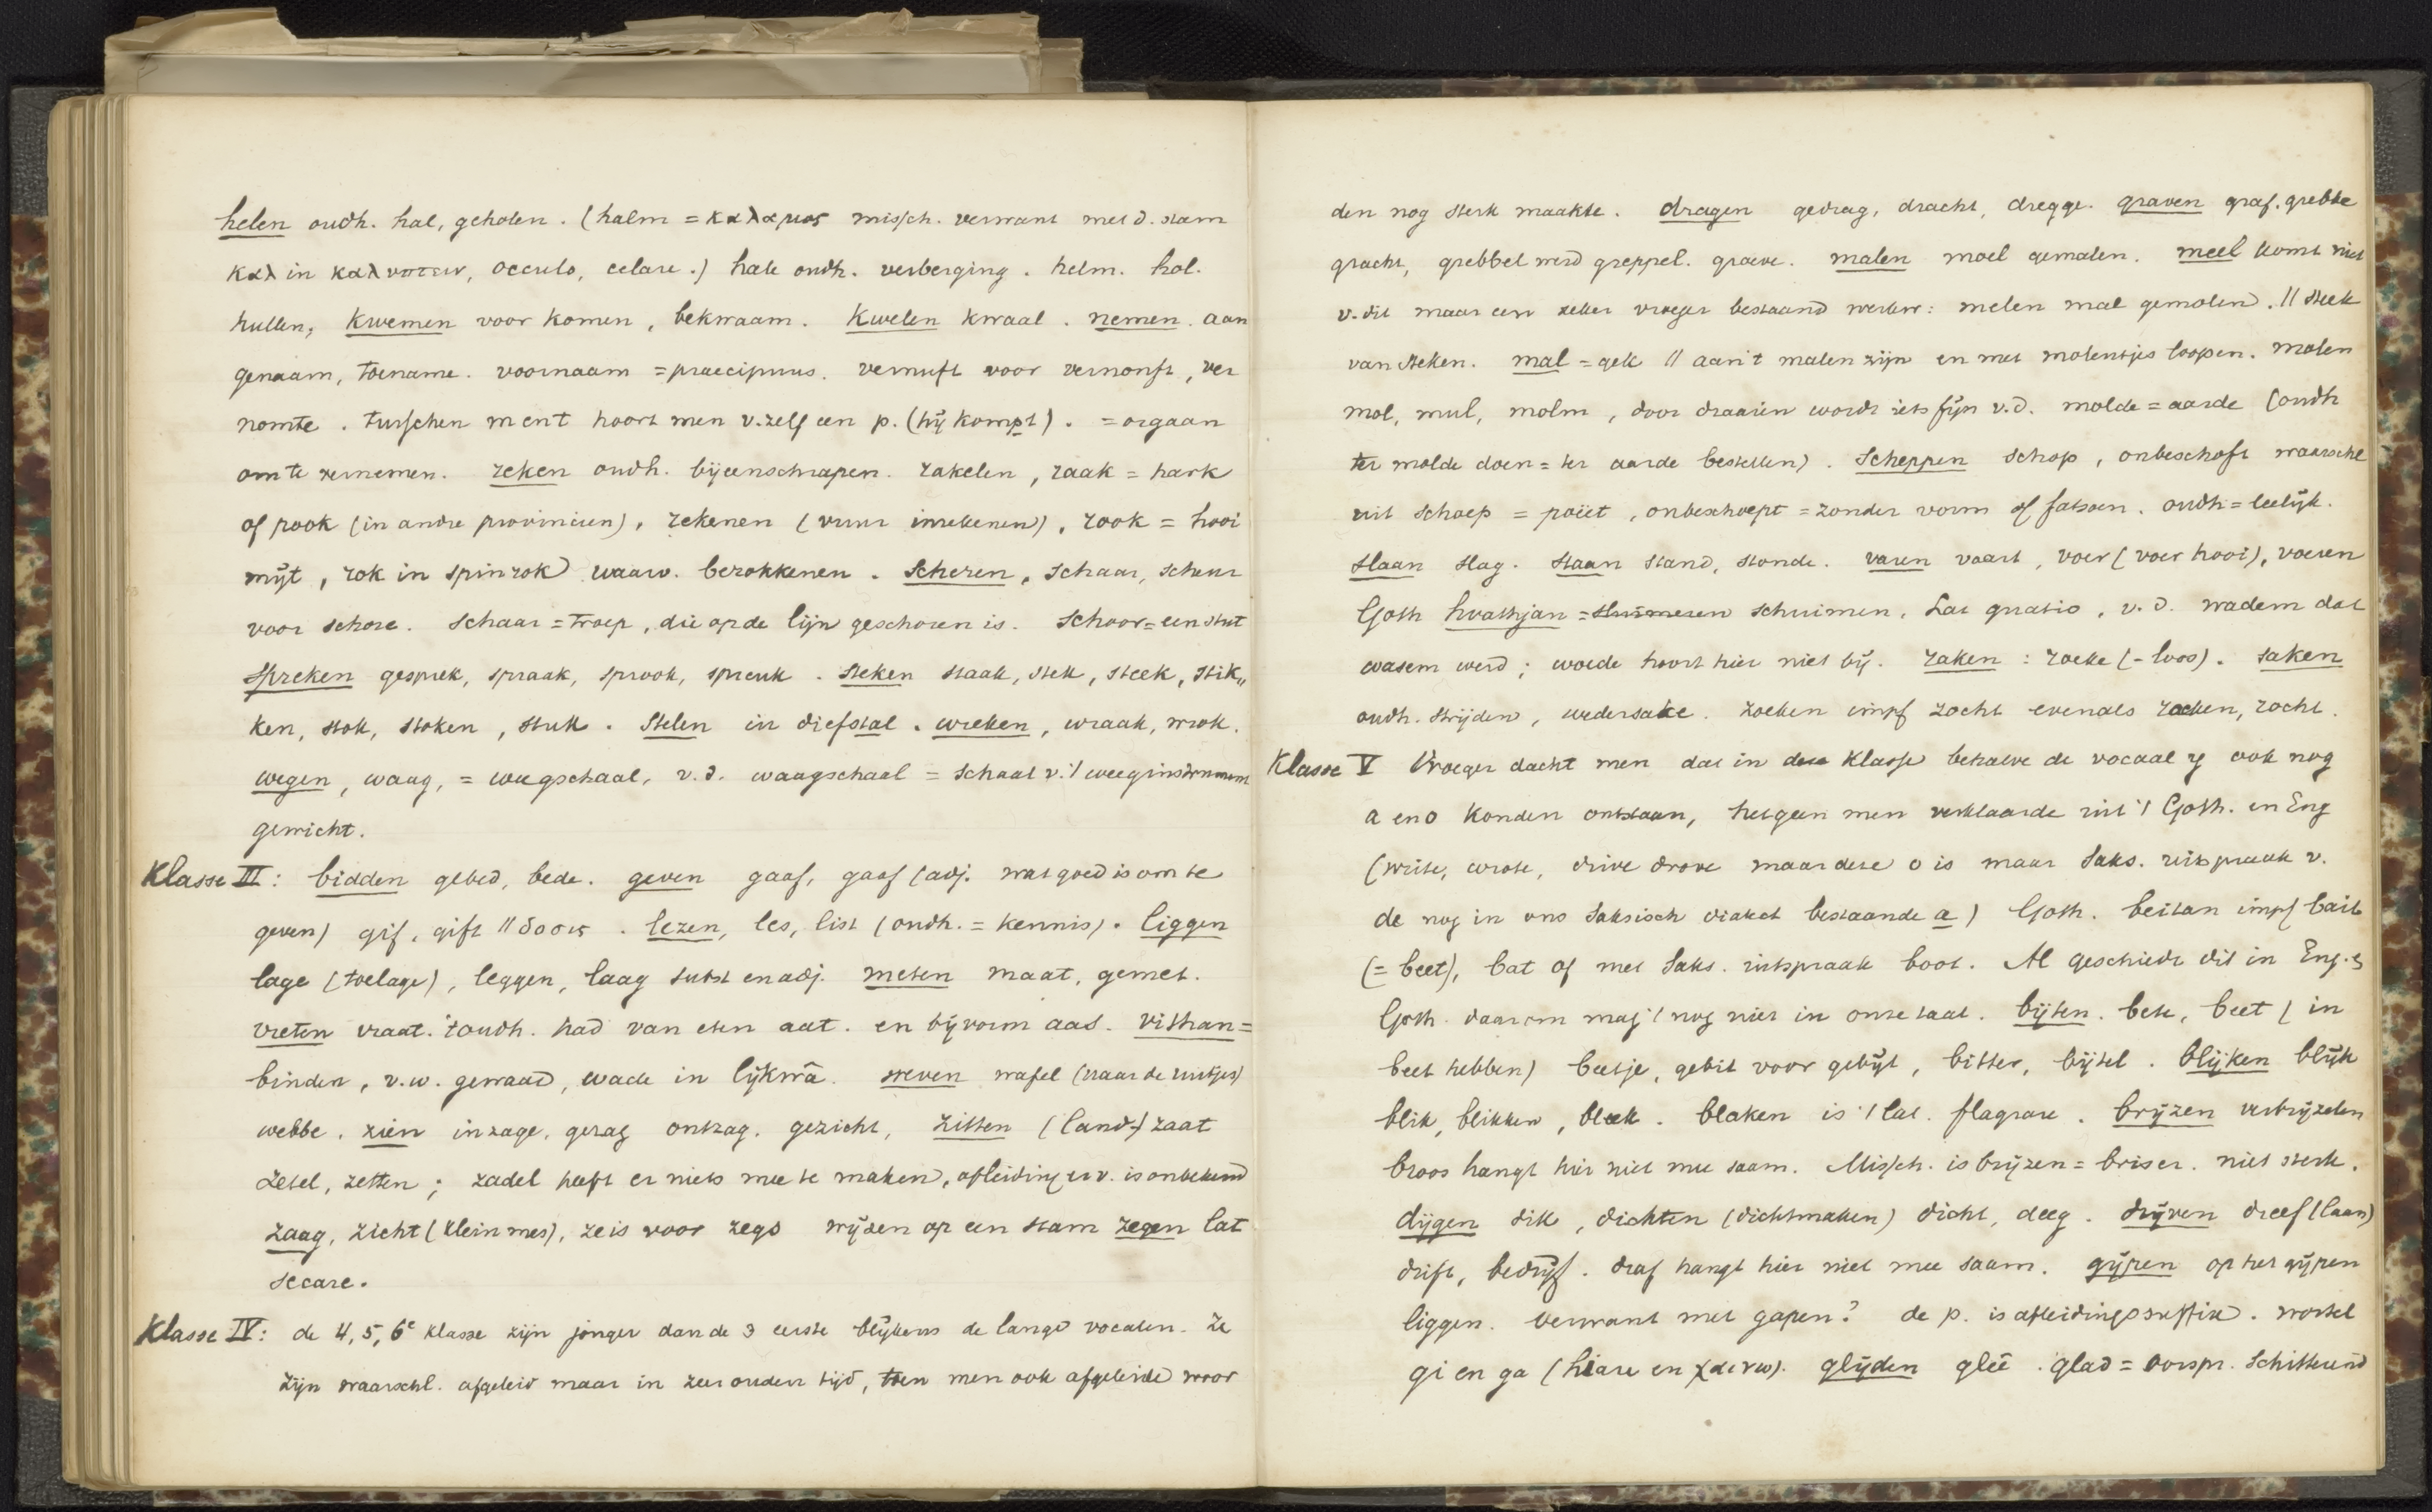 helen oudh. hal, geholen. (halm = καλαμος missch. verwant met d. stam
καλ in καλυπτειν, occulo, celare.) hale oudh. verberging. helm. hol.
hullen, kwemen voor komen, bekwaam. kwelen kwaal. nemen. aan
genaam, toename. voornaam = praecipuus. vernuft voor vernonft, ver
nomte. tusschen m en t hoort men v. zelf een p. (hij kompt). = orgaan
om te vernemen. reken oudh. bijeenschrapen. rakelen, raak = hark
of pook (in andre provincien), rekenen (vuur inrekenen), rook = hooi
mijt, rok in spinrok waarv. berokkenen. Scheren, schaar, scheur
voor schore. Schaar = troep, die op de lijn geschoren is. Schoor = een stut
Spreken gesprek, spraak, sprook, spreuk. steken staak, stek, steek, stik„
ken, stok, stoken, stuk. Stelen in diefstal. wreken, wraak, wrok.
wegen, waag, = weegschaal, v.d. waagschaal = schaal v. 't weeginstrument
gewicht.
Klasse III: bidden gebed, bede. geven gaaf, gaaf (adj. wat goed is om te
geven) gif, gift // δοσις. lezen, les, list (oudh. = kennis). liggen
lage (toelage), leggen, laag subst en adj. meten maat, gemet.
vreten vraat. 't oudh. had van eten aat. en bijvorm aas. vithan =
binden, v.w. gewaad, wade in lijkwâ. weven wafel (naar de ruitjes)
webbe. zien inzage, gezag ontzag. gezicht, zitten (land-) zaat
zetel, zetten; zadel heeft er niets mee te maken, afleiding er v. is onbekend
zaag, zicht (klein mes), zeis voor zegs wijzen op een stam zegen lat
secare.
Klasse IV: de 4, 5, 6e klasse zijn jonger dan de 3 eerste blijkens de lange vocalen. Ze
zijn waarschl. afgeleid maar in zeer ouden tijd, toen men ook afgeleide woor
den nog sterk maakte. dragen gedrag, dracht, dregge. graven graf. grebbe
gracht, grebbel werd greppel. groeve. malen moel gemalen. meel komt niet
v. dit maar een zeker vroeger bestaand werkw: melen mal gemolen. // steek
van steken. mal = gek // aan 't malen zijn en met molentjes loopen. molen
mol, mul, molm, door draaien wordt iets fijn v.d. molde = aarde (oudh
ter molde doen = ter aarde bestellen). Scheppen schop, onbeschoft waarschl
uit schoep = poëet, onbeschoept = zonder vorm of fatsoen. oudh = leelijk.
slaan slag. staan stand, stonde. varen vaart, voer (voer hooi), voeren
Goth hvathjan = schuimen. Lat quatio, v.d. wadem dat
wasem werd; woede hoort hier niet bij. raken: roeke (-loos). saken
oudh. strijden, wedersake. zoeken impf zocht evenals roeken, rocht.
Klasse V Vroeger dacht men dat in deze klasse behalve de vocaal ij ook nog
a en o konden ontstaan, hetgeen men verklaarde uit 't Goth. en Eng
(write, wrote, drive drove maar deze o is maar Saks. uitspraak v.
de nog in ons Saksisch dialect bestaande a) Goth. beitan impf bait
(= beet), bat of met Saks. uitspraak boot. Al geschiedt dit in Eng. &
Goth. daarom mag 't nog niet in onze taal. bijten. bete, beet (in
beet hebben) beetje, gebit voor gebijt, bitter, bijtel. blijken blijk
blik, blikken, bleek. blaken is 't lat. flagrare. brijzen verbrijzelen
broos hangt hier niet mee saam. Missch. is brijzen = briser. niet sterk.
dijgen dik, dichten (dichtmaken) dicht, deeg. drijven dreef (laan)
drift, bedrijf. draf hangt hier niet mee saam. gijpen op het gijpen
liggen. verwant met gapen? de p. is afleidingssuffix. wortel
gi en ga (hiare en χαινω). glijden glee. glad = oorspr. schitterend